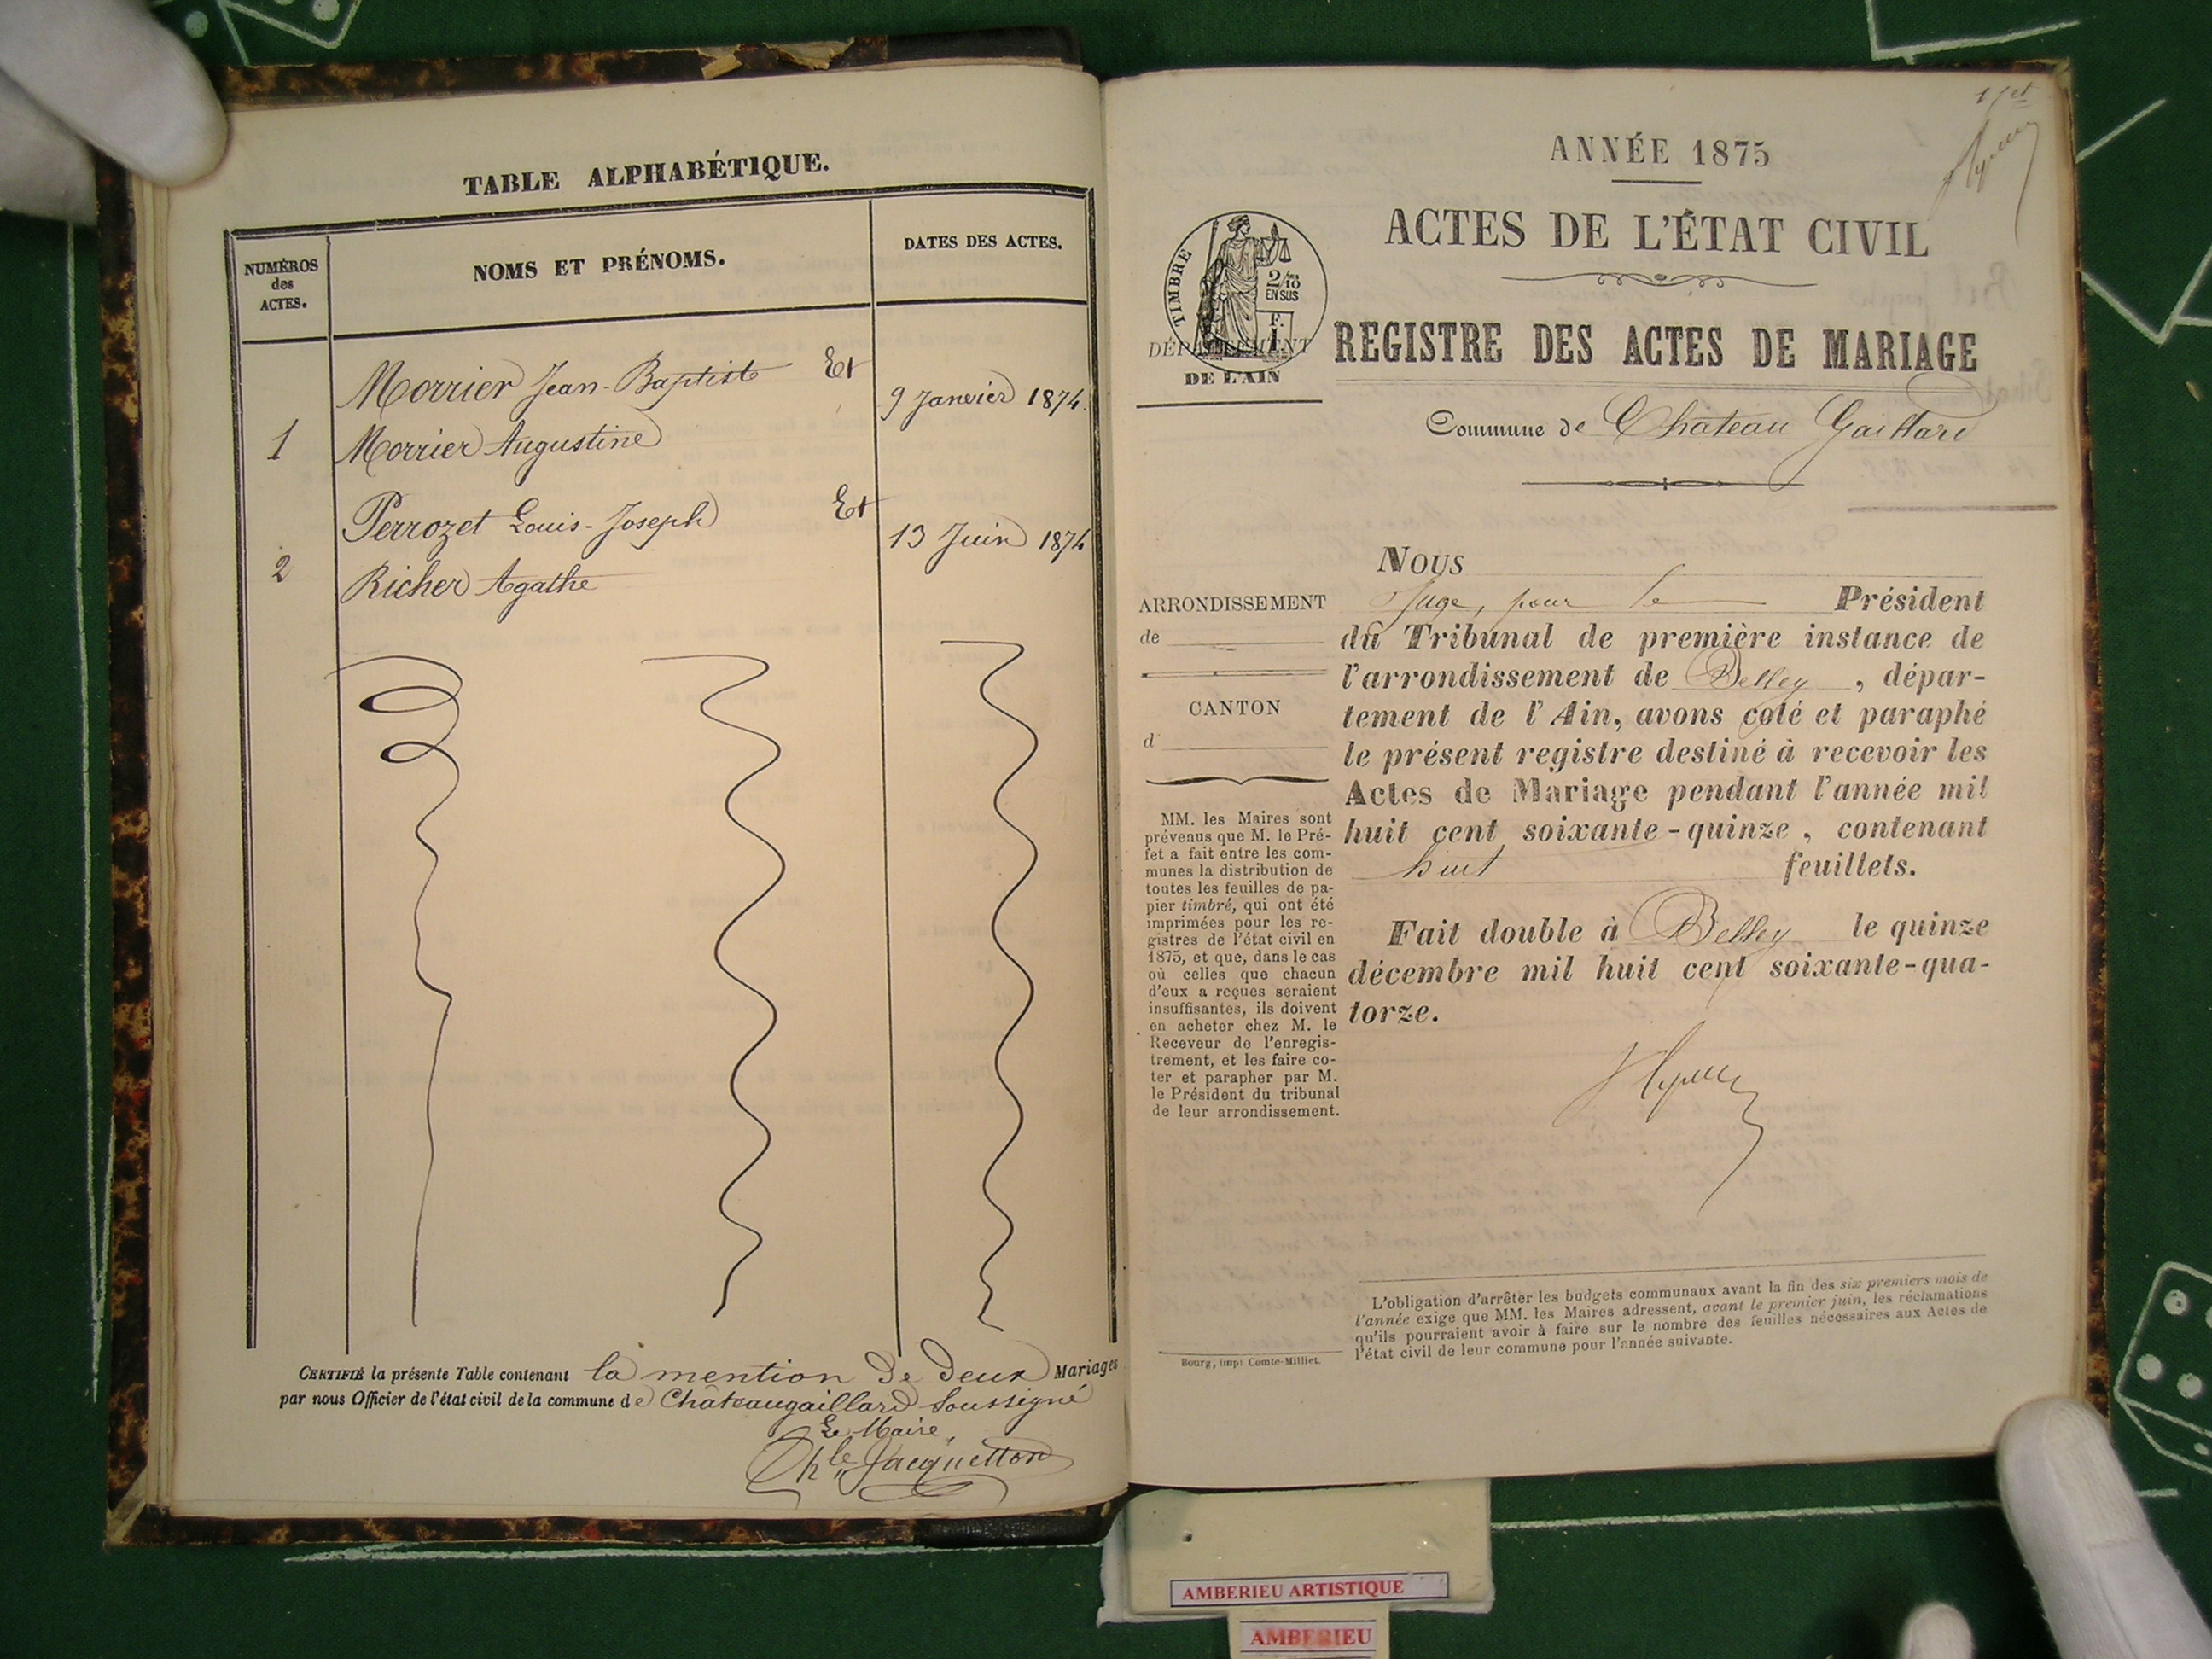 TABLE ALPHABÉTIQUE.
NUMÉROS
des
ACTES.
NOMS ET PRÉNOMS.
DATES DES ACTES.
Morrier Jean-Baptiste Et
9 Janvier 1874.
1
Morrier Augustine
Perrozet Louis-Joseph Et
13 Juin 1874
2
Richer Agathe
CERTIFIÉ la présente Table contenant la mention de deux Mariages
par nous Officier de l'état civil de la commune de Châteaugaillard Soussigné
Le Maire,
Jacquetton
1
ANNÉE 1875
ACTES DE L'ÉTAT CIVIL
TIMBRE
2/10
EN SUS
F.
1
DÉPARTEMENT
DE L'AIN
REGISTRE DES ACTES DE MARIAGE
Commune de Château Gaillard
ARRONDISSEMENT
de
CANTON
d
MM. les Maires sont
prévenus que M. le Pré-
fet a fait entre les com-
munes la distribution de
toutes les feuilles de pa-
pier timbré, qui ont été
imprimées pour les re-
gistres de l'état civil en
1875, et que, dans le cas
où celles que chacun
d'eux a reçues seraient
insuffisantes, ils doivent
en acheter chez M. le
Receveur de l'enregis-
trement, et les faire co-
ter et parapher par M.
le Président du tribunal
de leur arrondissement.
Nous
Juge, pour le Président
du Tribunal de première instance de
l'arrondissement de Belley, dépar-
tement de l'Ain, avons coté et paraphé
le présent registre destiné à recevoir les
Actes de Mariage pendant l'année mil
huit cent soixante-quinze, contenant
huit feuillets.
Fait double à Belley le quinze
décembre mil huit cent soixante-qua-
torze.
L'obligation d'arrêter les budgets communaux avant la fin des six premiers mois de
l'année exige que MM. les Maires adressent, avant le premier juin, les réclamations
qu'ils pourraient avoir à faire sur le nombre des feuilles nécessaires aux Actes de
l'état civil de leur commune pour l'année suivante.
Bourg, impr Comte-Milliet.
AMBERIEU ARTISTIQUE
AMBERIEU